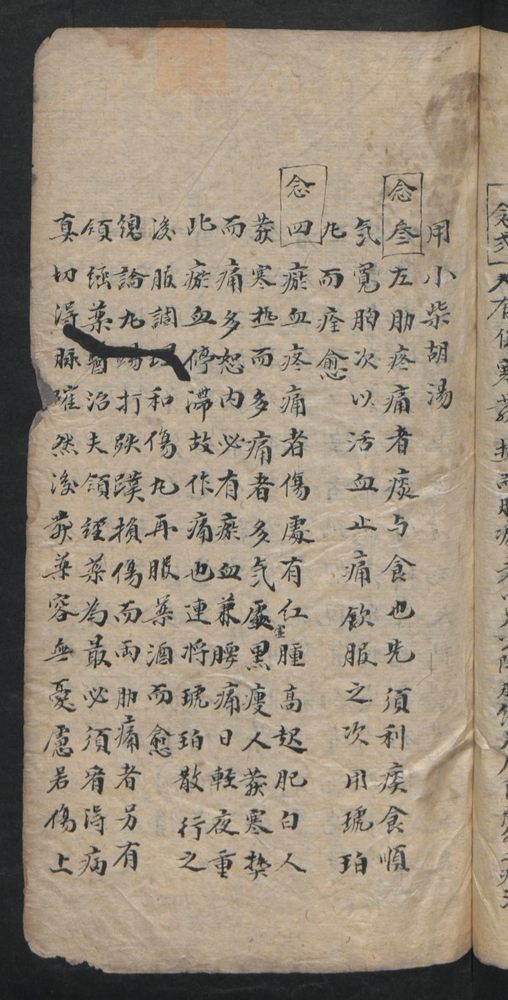 用小柴胡湯
念叄左肋疼痛者痰与食也先須利痰食順
気寬胸次以活血止痛飲服之次用琥珀
丸而痊愈
念四瘀血疼痛者傷處有红腫高起肥白人
䒳寒热而多痛者多気虛黑瘦人䒳寒热
而痛多怒内必有瘀血兼腰痛日輕夜重
此瘀血停滯故作痛也連将琥珀散行之
後服調和傷丸再服藥酒而愈
總論凡打跌蹼損傷而両肋痛者另有
領經藥醫治夫領經藥為最必須看淂病
真切淂脉確然後䒳藥容無憂慮若傷上